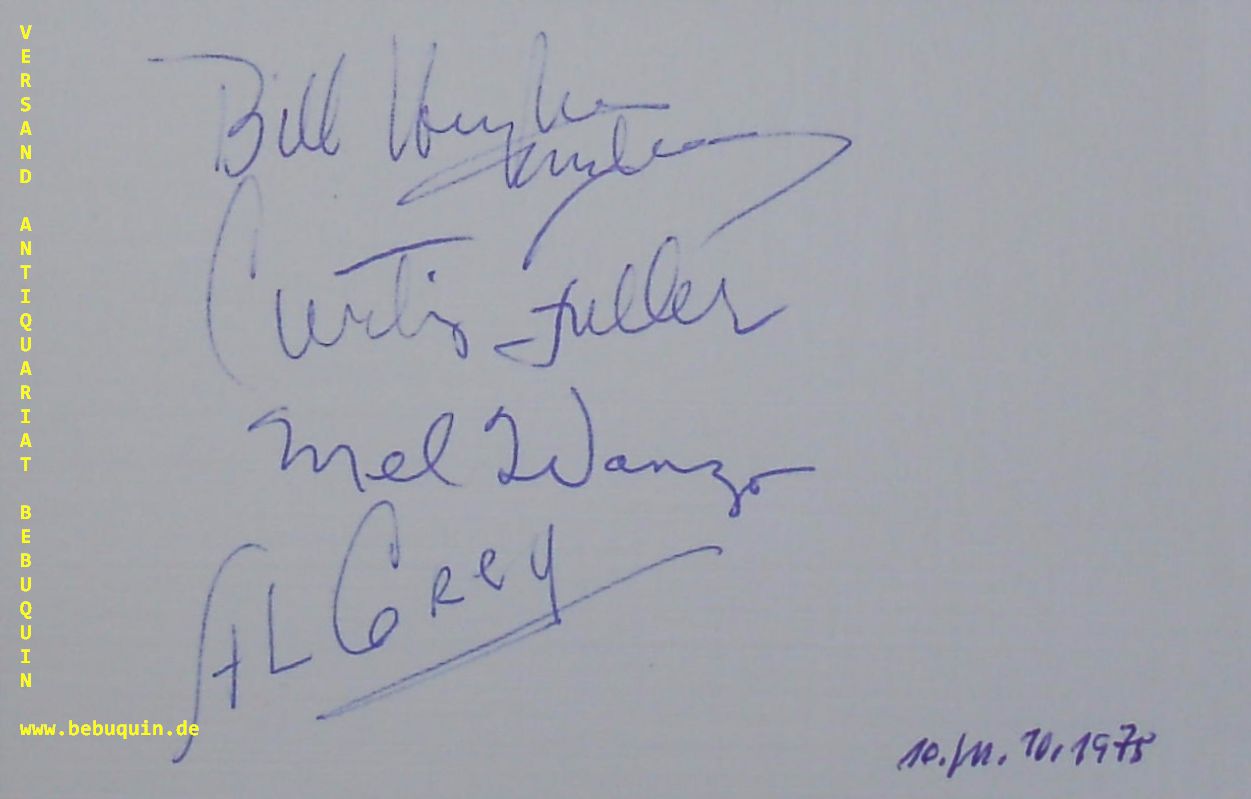 VERSAND ANTIQUARIAT BEBUQUIN
www.bebuquin.de
Bill Hughes
Curtis Fuller
Mel Wanzo
AL Grey
10./11. 10. 1975